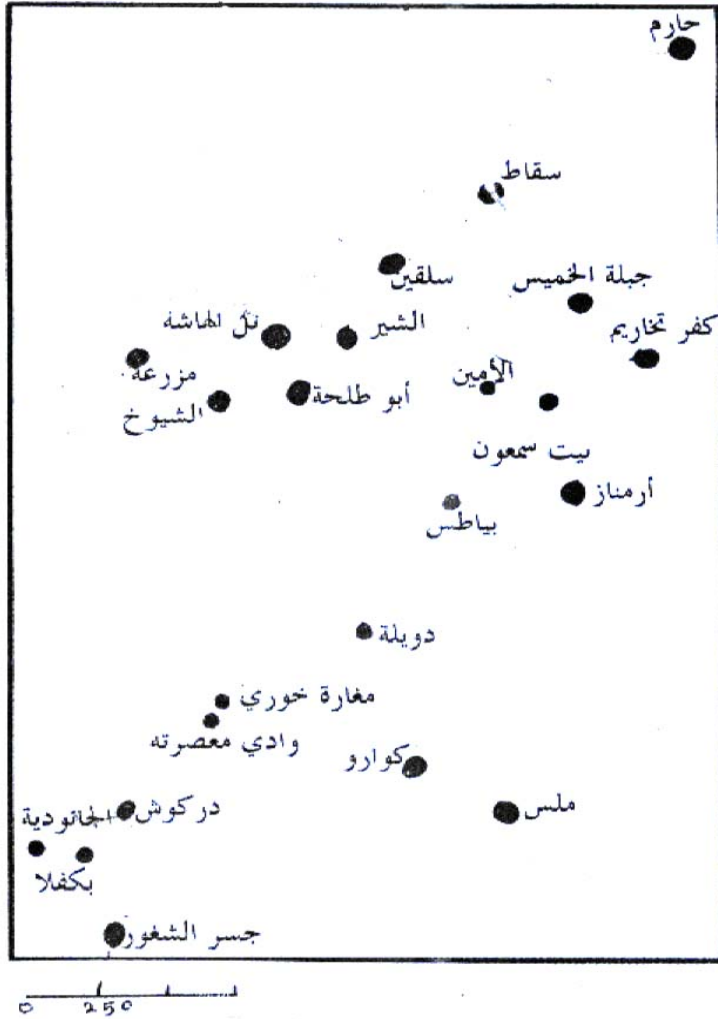 حارم
سقاط
سلقين
جبلة الخميس
تل الهاشة
الشير
كفر تخاريم
مزرعة
الأمين
أبو طلحة
الشيوخ
بيت سمعون
أرمناز
بياطس
دويلة
مغارة خوري
وادي معصرته
كوارو
الجانودية
دركوش
ملس
بكفلا
جسر الشغور
0 250